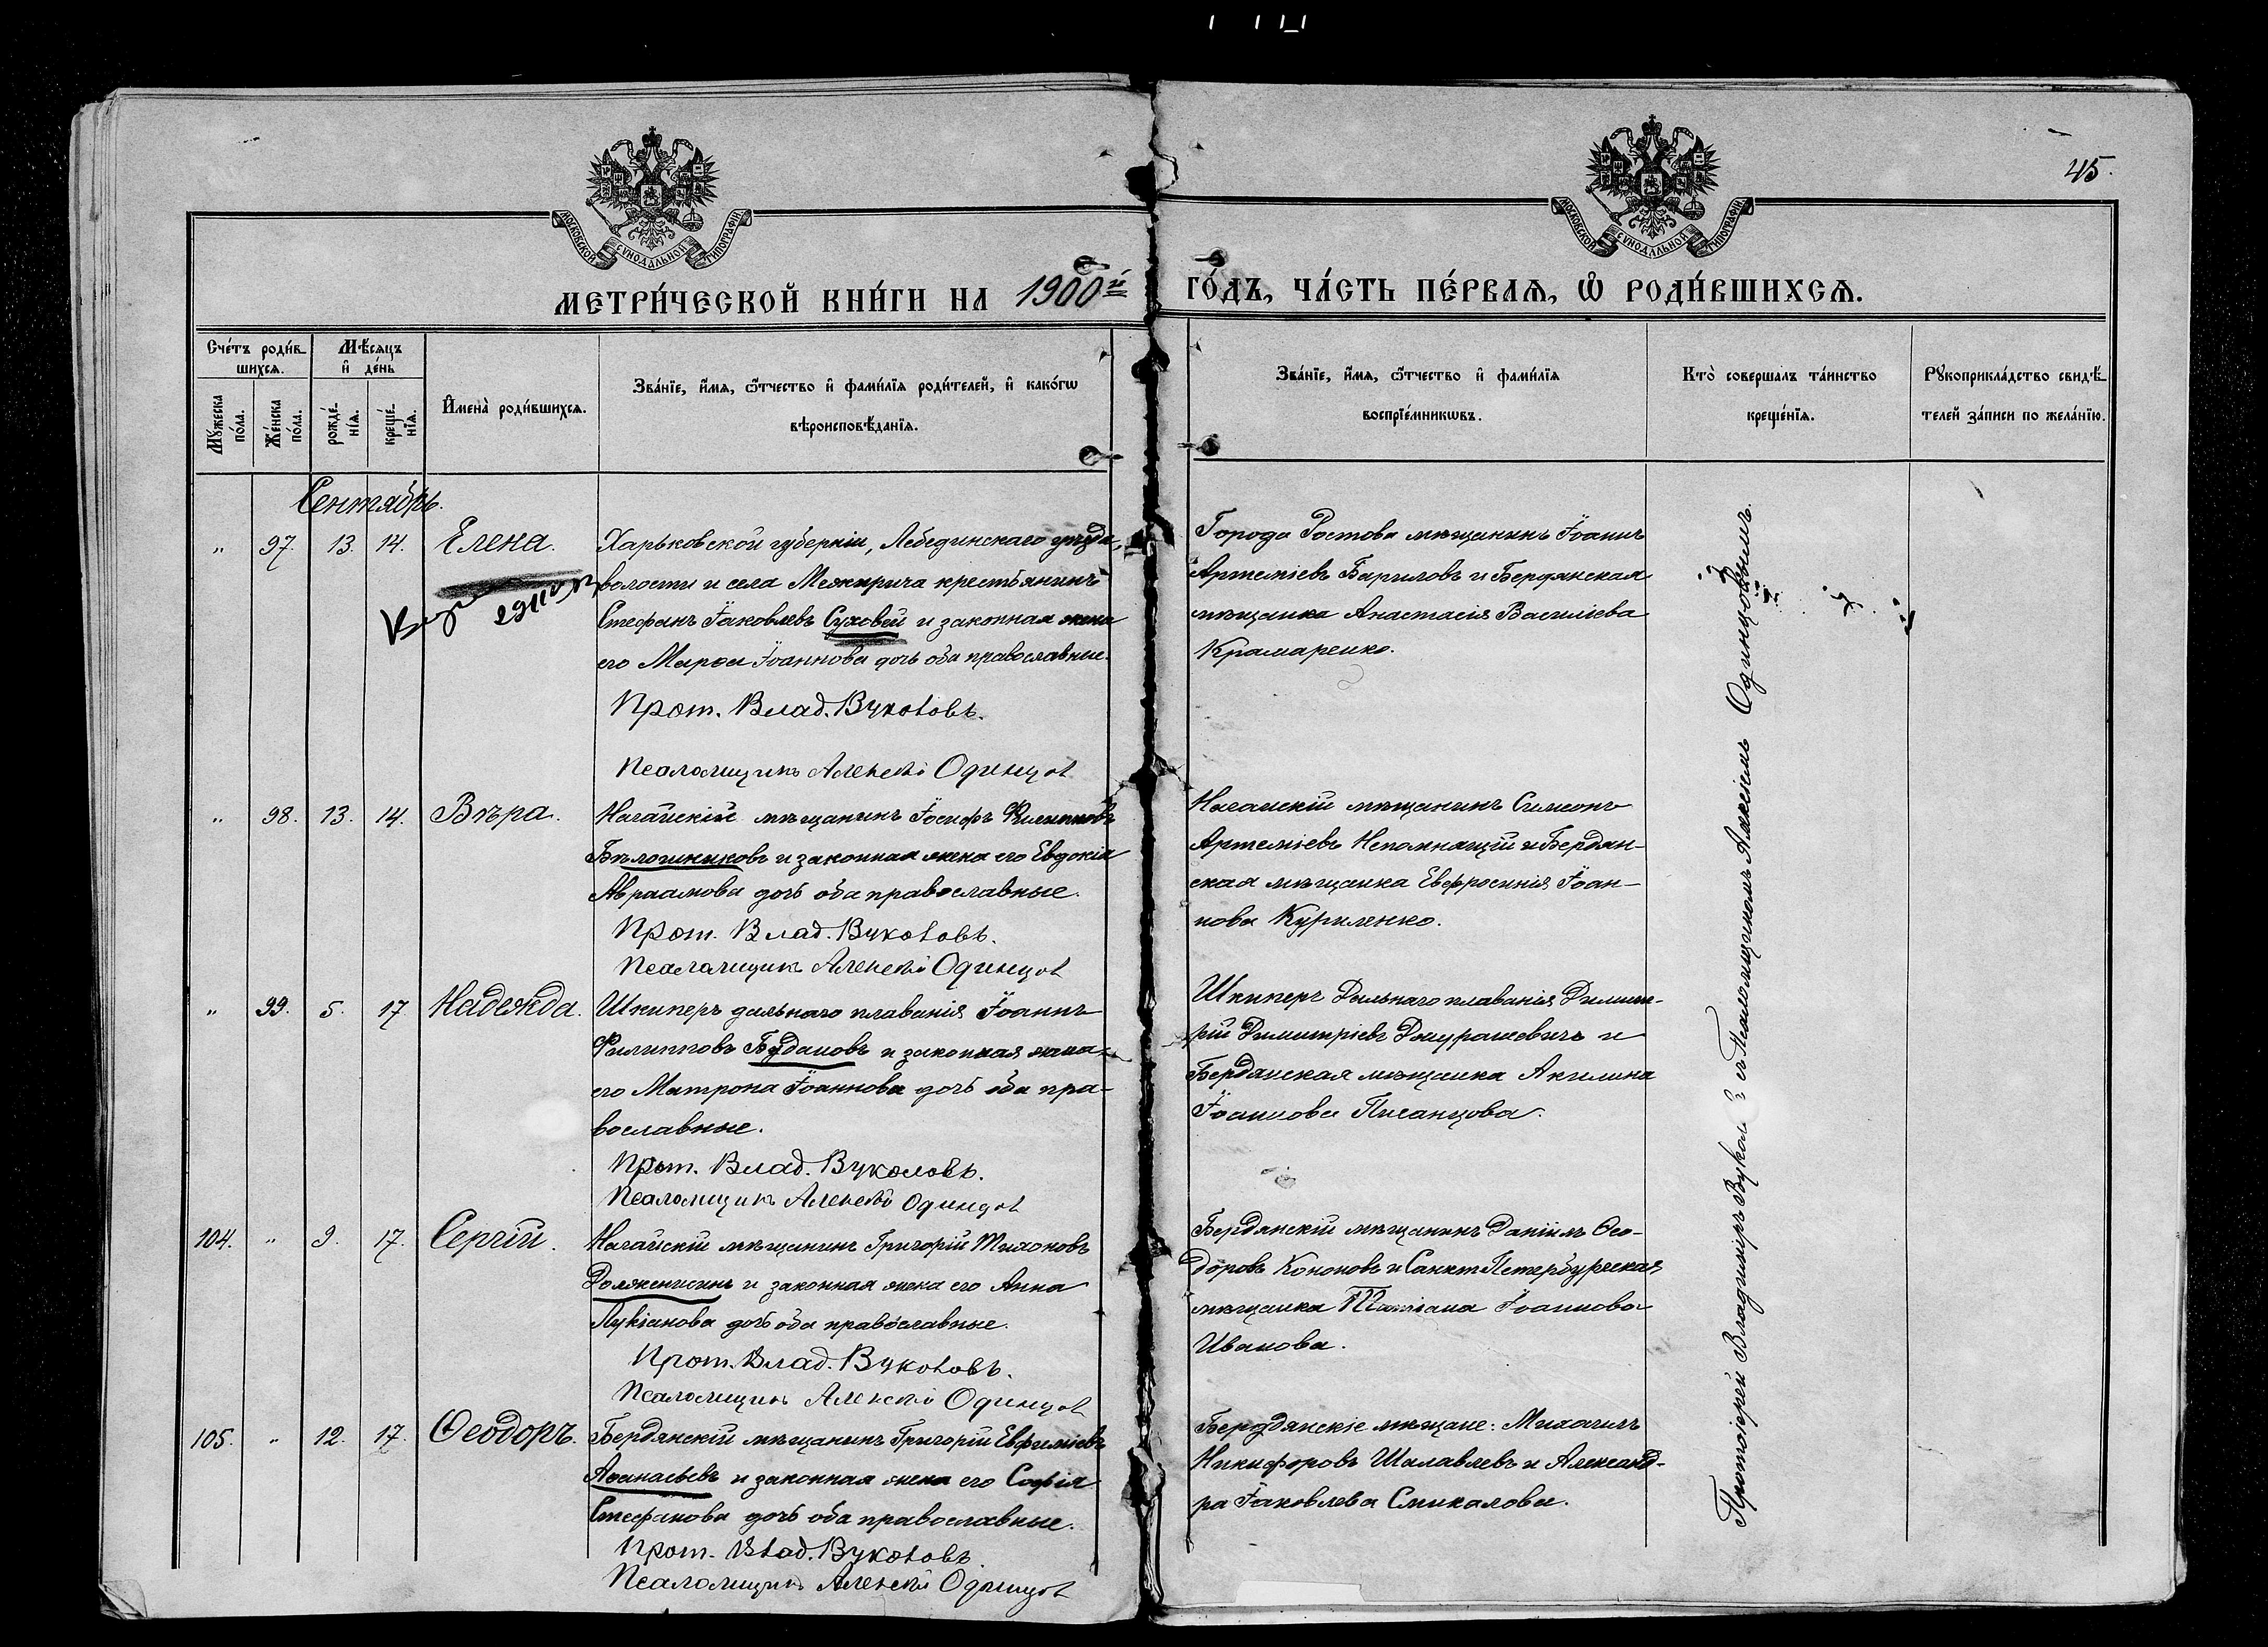 45.
МОСКОВСКОЙ СѴНОДАЛЬНОЙ ТИПОГРАФІИ
МОСКОВСКОЙ СѴНОДАЛЬНОЙ ТИПОГРАФІИ
МЕТРИ́ЧЕСКОЙ КНИ́ГИ НА 1900й ГО́ДЪ, ЧА́СТЬ ПЕ́РВАЯ, Ѡ҆ РОДИ́ВШИХСЯ.
Сче́тъ роди́в-
шихся.
Мꙋ́жеска по́ла.
Же́нска по́ла.
Мѣ́сяцъ
и҆ де́нь
рожде́-
нїя.
креще́-
нїя.
И҆мена̀ роди́вшихся.
Зва́нїе, и҆́мя, ѻ҆́тчество и҆ фами́лїя роди́телей, и҆ како́гѡ
вѣроисповѣ́данїя.
Зва́нїе, и҆́мя, ѻ҆́тчество и҆ фами́лїя
воспрїе́мникѡвъ.
Кто̀ соверша́лъ та́инство
креще́нїя.
Рꙋкоприкла́дство свидѣ́-
телей за́писи по жела́нїю.
Сентябрь.
" 97. 13. 14. Елена.
Харьковской губерніи, Лебединскаго уѣзда,
волости и села Межирича крестьянинъ
Стефанъ Іаковлевъ Суховей и законная жена
его Марѳа Іоаннова дочь оба православные.
Прот. Влад. Вуколовъ.
Псаломщикъ Алексѣй Одинцов
Города Ростова мѣщанинъ Іоаннъ
Артеміевъ Бариловъ и Бердянская
мѣщанка Анастасія Василіева
Крамаренко.
" 98. 13. 14. Вѣра.
Ногайскій мѣщанинъ Іосифъ Филипповъ
Бѣлошниковъ и законная жена его Евдокія
Авраамова дочь оба православные.
Прот. Влад. Вуколовъ.
Псаломщикъ Алексѣй Одинцов
Ногайскій мѣщанинъ Симеонъ
Артеміевъ Непомнящій и Бердян-
ская мѣщанка Евфросинія Іоан-
нова Куриленко.
" 99. 5. 17. Надежда.
Шкиперъ дальнаго плаванія Іоаннъ
Филипповъ Будановъ и законная жена
его Матрона Іоаннова дочь оба пра-
вославные.
Прот. Влад. Вуколовъ.
Псаломщикъ Алексѣй Одинцов
Шкиперъ Дальнаго плаванія Димит-
рій Димитріевъ Джурашевичъ и
Бердянская мѣщанка Акилина
Іоаннова Писанцова.
104. " 9. 17. Сергій.
Ногайскій мѣщанинъ Григорій Тихоновъ
Долженкинъ и законная жена его Анна
Лукіанова дочь оба православные.
Прот. Влад. Вуколовъ.
Псаломщикъ Алексѣй Одинцов
Бердянскій мѣщанинъ Даніилъ Ѳео-
доровъ Кононовъ и Санктпетербургская
мѣщанка Татіана Іоаннова
Иванова.
105. " 12. 17. Ѳеодоръ.
Бердянскій мѣщанинъ Григорій Евфиміевъ
Аѳанасьевъ и законная жена его Софія
Стефанова дочь оба православные.
Прот. Влад. Вуколовъ.
Псаломщикъ Алексѣй Одинцов
Бердянскіе мѣщане: Михаилъ
Никифоровъ Шалавлевъ и Александ-
ра Іаковлева Смикалова.
Протоіерей Владимиръ Вукол съ Псаломщикомъ Алексіемъ Одинцовымъ.